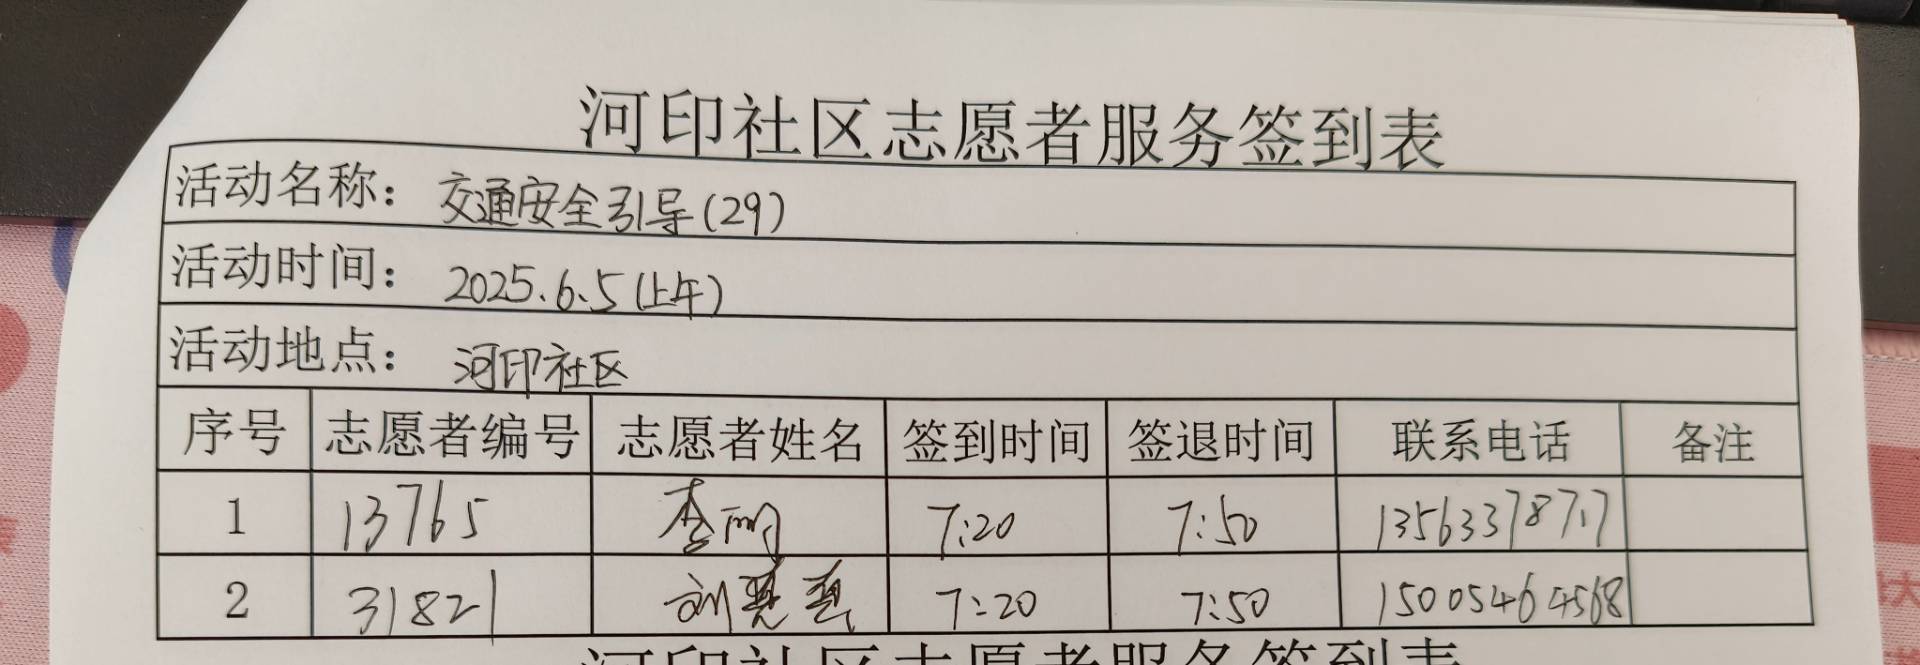 河印社区志愿者服务签到表
活动名称： 交通安全引导(29)
活动时间： 2025.6.5(上午)
活动地点： 河印社区
序号 志愿者编号 志愿者姓名 签到时间 签退时间 联系电话 备注
1 13765 7:20 7:50
2 31821 7:20 7:50 15005464568
河印社区志愿者服务签到表